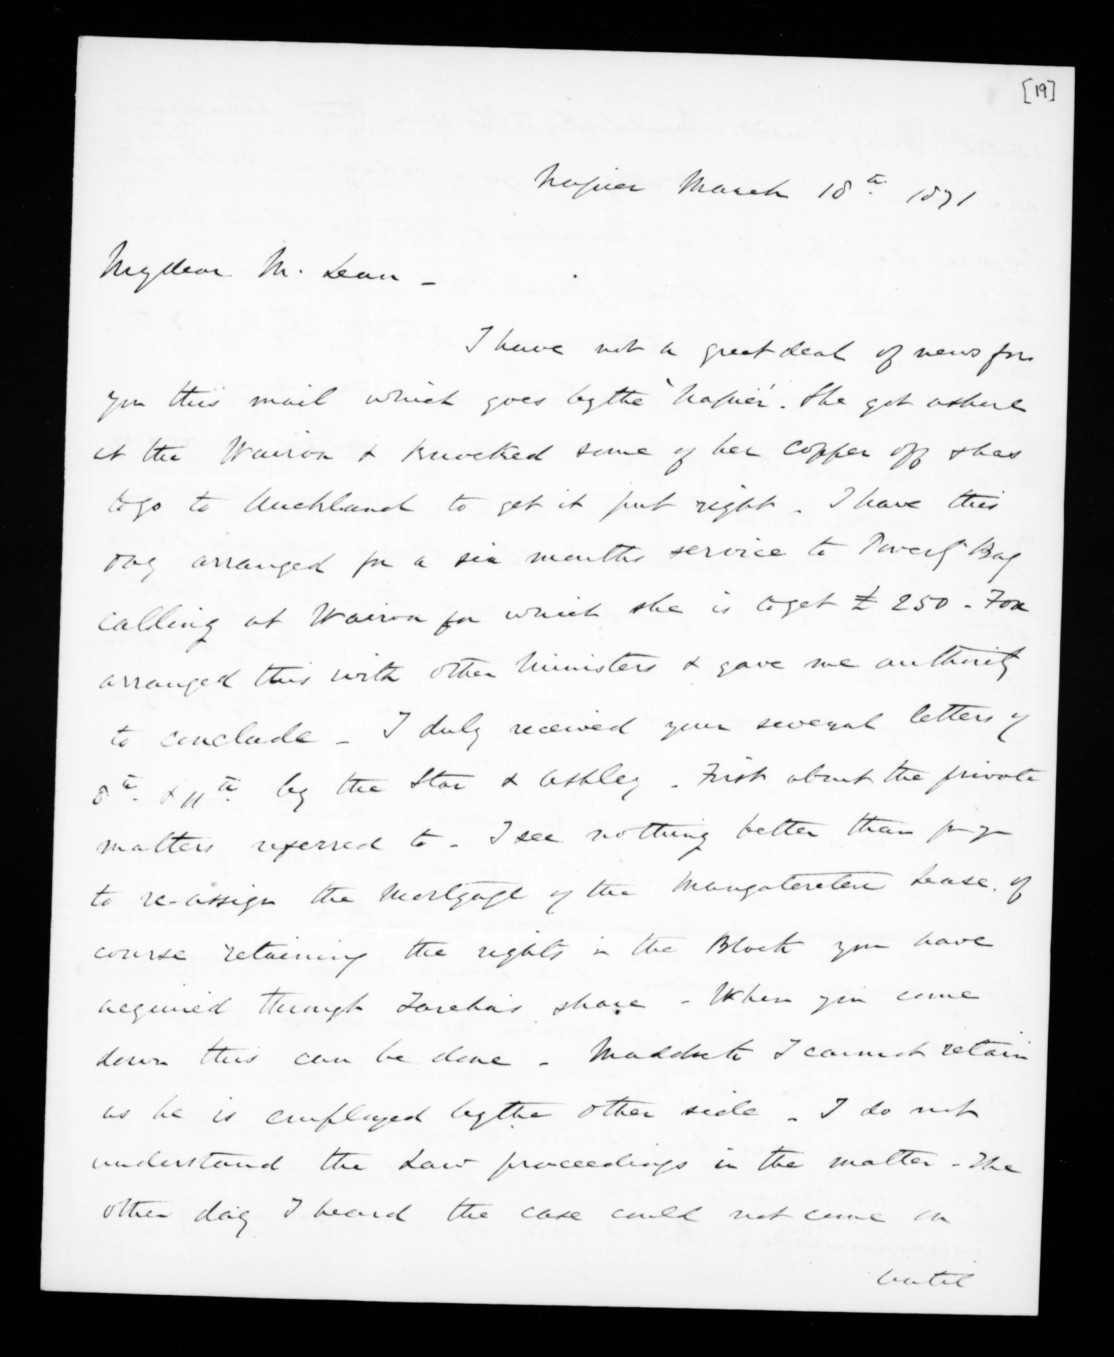 [19]
Napier March 18th 1871
My dear McLean -
I have not a great deal of news for
you this mail which goes by the 'Napier'. She got ashore
at the Wairoa & knocked some of her copper off & has
to go to Auckland to get it put right. I have this
day arranged for a six months service to Poverty Bay
calling at Wairoa for which she is to get £250 - Fox
arranged this with other Ministers & gave me authority
to conclude - I duly received your several letters of
8th & 11th by the Star & Ashley. First about the private
matters referred to - I see nothing better than for you
to re-assign the Mortgage of the Mangateretere Lease. of
course retaining the rights in the Block you have
acquired through Tareha's share - When you come
down this can be done - I cannot retain
as he is employed by the other side - I do not
understand the Law proceedings in the matter - The
other day I heard the case could not come on
until